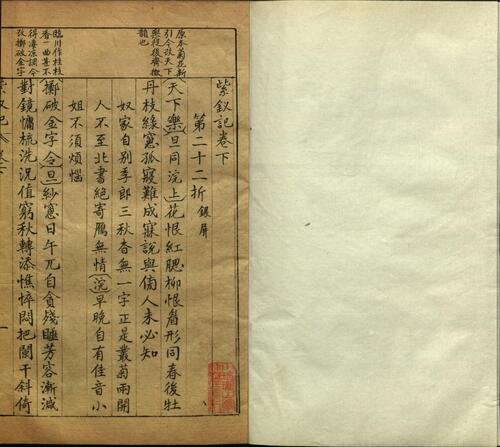 紫釵記卷下
第二十二折 銀屏
天下樂旦同浣上花恨紅腮柳恨眉形同春後牡
丹枝綠窻孤寢難成寐說與傍人未必知
奴家自別李郎三秋杳無一字正是叢菊兩開
人不至北書絕寄鴈無情浣早晚自有佳音小
姐不須煩惱
擲破金字令旦紗窻日午兀自貪殘睡芳容漸減
對鏡慵梳洗況值窮秋轉添憔悴悶把闌干斜倚
原本菊花新
引今改天下
樂從後齊微
韻也
臨川作桂枝
香一曲甚不
得凄凉調今
改擲破金字
一